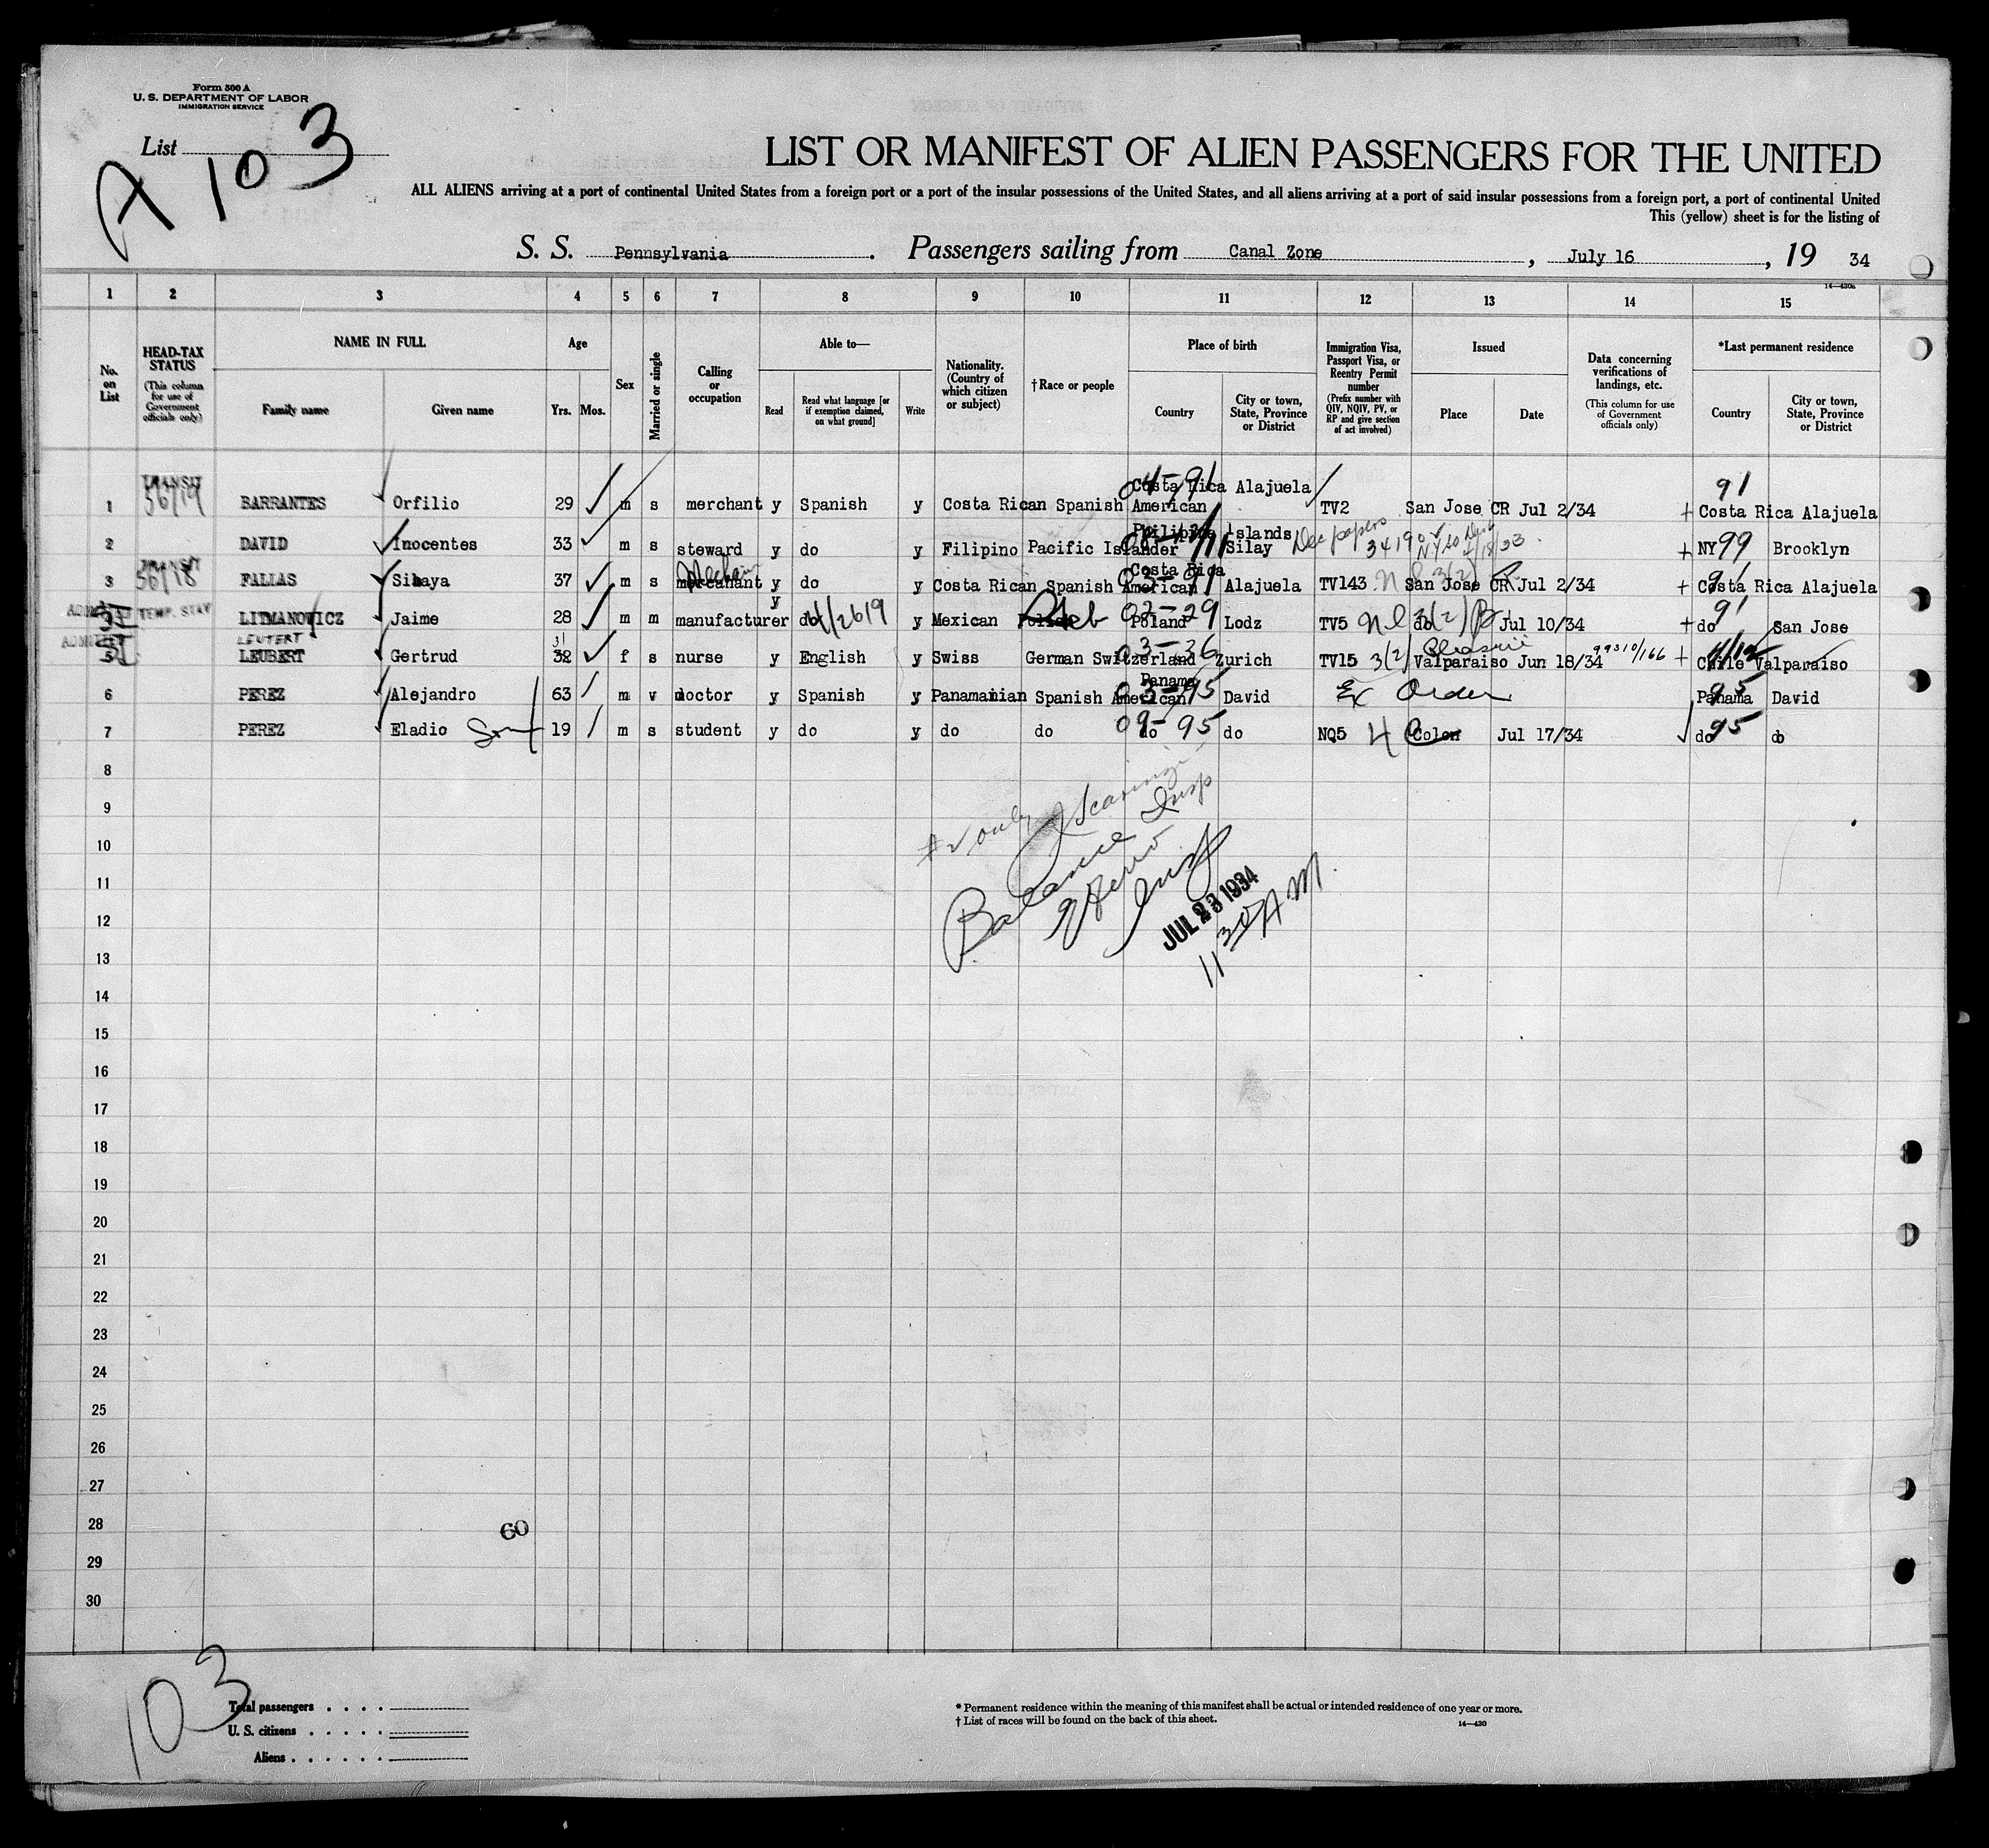 Form 500 A
U. S. DEPARTMENT OF LABOR
IMMIGRATION SERVICE
List
A 103
LIST OR MANIFEST OF ALIEN PASSENGERS FOR THE UNITED
ALL ALIENS arriving at a port of continental United States from a foreign port or a port of the insular possessions of the United States, and all aliens arriving at a port of said insular possessions from a foreign port, a port of continental United
This (yellow) sheet is for the listing of
S. S. Pennsylvania . Passengers sailing from Canal Zone , July 16 , 19 34
14—430a
1 2 3 4 5 6 7 8 9 10 11 12 13 14 15
No. on List
HEAD-TAX STATUS (This column for use of Government officials only)
NAME IN FULL Family name Given name
Age Yrs. Mos.
Sex
Married or single
Calling or occupation
Able to— Read Read what language [or if exemption claimed, on what ground] Write
Nationality. (Country of which citizen or subject)
†Race or people
Place of birth Country City or town, State, Province or District
Immigration Visa, Passport Visa, or Reentry Permit number (Prefix number with QIV, NQIV, PV, or RP and give section of act involved)
Issued Place Date
Data concerning verifications of landings, etc. (This column for use of Government officials only)
*Last permanent residence Country City or town, State, Province or District
1 TRANSIT 56/19 BARRANTES Orfilio 29 m s merchant y Spanish y Costa Rican Spanish American Costa Rica 04-91 Alajuela TV2 San Jose CR Jul 2/34 91 Costa Rica Alajuela
2 DAVID Inocentes 33 m s steward y do y Filipino Pacific Islander Philipine Islands Silay Dec papers NY 99 Brooklyn
3 TRANSIT 56/18 FALLAS Sibaya 37 m s merchant y do y Costa Rican Spanish American Costa Rica 03-91 Alajuela TV143 3(2) San Jose CR Jul 2/34 91 Costa Rica Alajuela
4 ADMITTED TEMP. STAY LITMANOWICZ Jaime 28 m m manufacturer y do y Mexican Polish 02-29 Poland Lodz TV5 3(2) do Jul 10/34 91 do San Jose
5 ADMITTED LEUTERT LEUBERT Gertrud 31 32 f s nurse y English y Swiss German 03-36 Switzerland Zurich TV15 3(2) Pleasure Valparaiso Jun 18/34 99310/166 Chile Valparaiso
6 PEREZ Alejandro 63 m v doctor y Spanish y Panamanian Spanish American Panama 03-95 David Ex Order 95 Panama David
7 PEREZ Eladio Son 19 m s student y do y do do 09-95 do do NQ5 4 Colon Jul 17/34 95 do do
8
9
10
11
12
13
14
15
16
17
18
19
20
21
22
23
24
25
26
27
28
29
30
Balance
JUL 23 1934
11 30 A.M.
60
103
Total passengers . . . .
U. S. citizens . . . . .
Aliens . . . . . .
* Permanent residence within the meaning of this manifest shall be actual or intended residence of one year or more.
† List of races will be found on the back of this sheet.
14—430